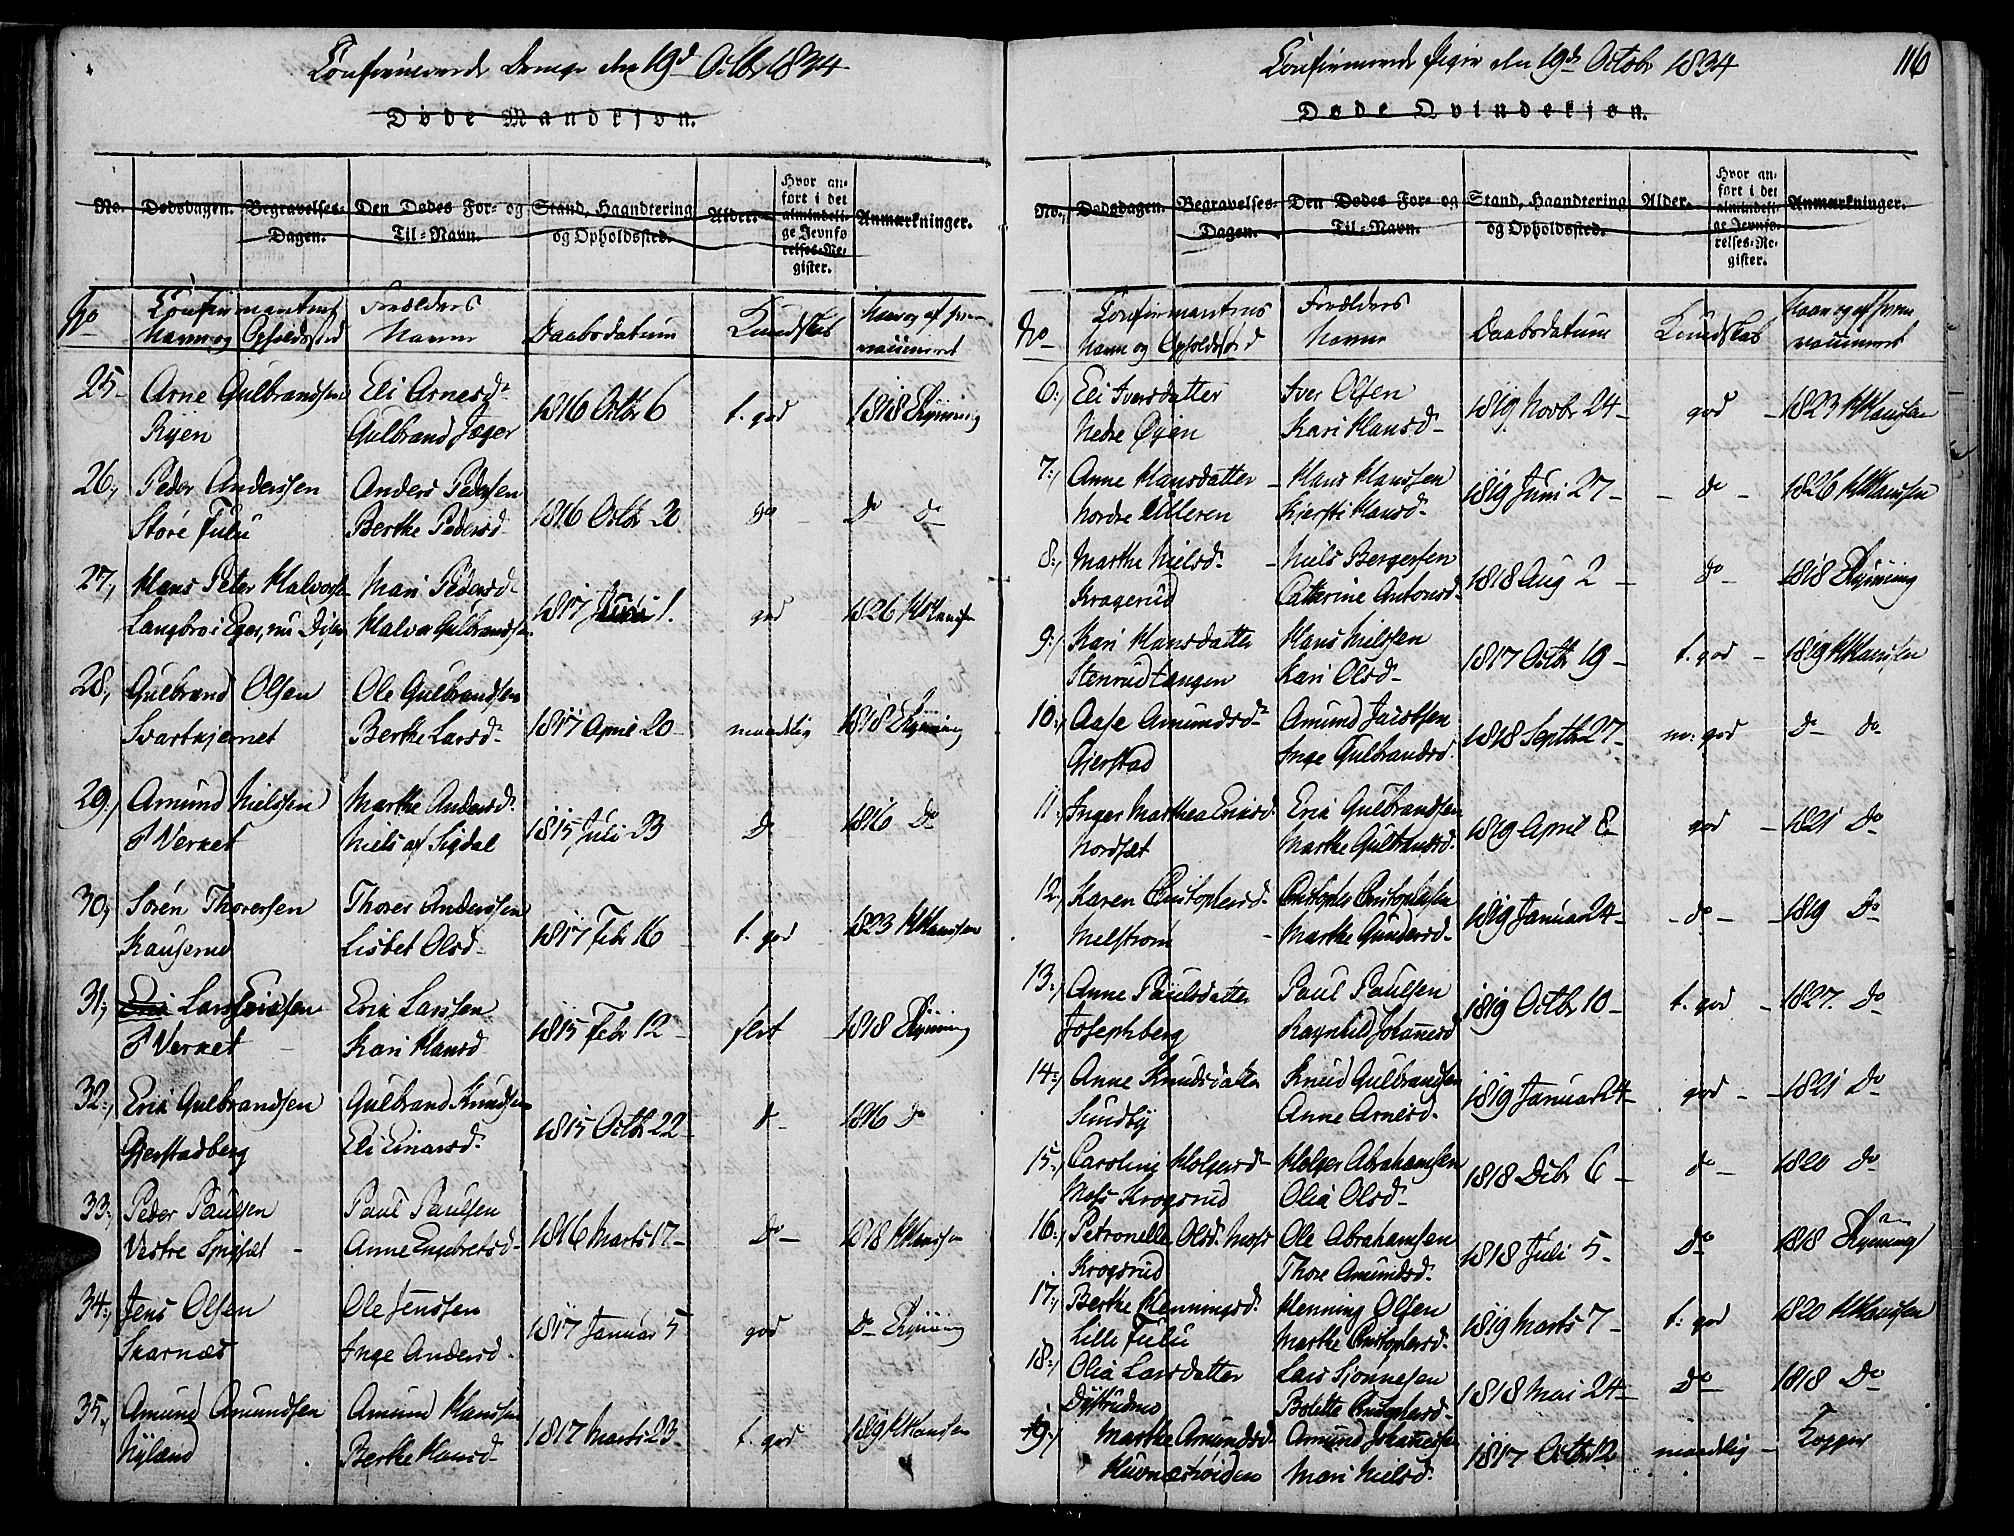 Confirmerede Drenge den 19d Octbr 1834
Døde Mandkjøn.
No. Dødsdagen. Begravelses-Dagen. Den Dødes For- og Til-Navn. Stand, Haandtering og Opholdssted. Alder. Hvor anført i det almindelige Jevnførelses-Register. Anmærkninger.
No Confirmantens Navn og Opholdssted Forældres Navne Daabsdatum Kundskab Naar og af hvem vaccineret
25. Arne Gulbrandsen Eli Arnesd. 1816 Octbr 6 t. god 1818
Ryen Gulbrand Jæger
26, Peder Anderssen Anders Pedersen 1816 Octbr 20 do Do do
Store Fulu Berthe Pedersd
27, Hans Peter Halvors Mari Pedersd. 1817 Juni 1. god 1826 HHansen
Langbro i Eger, nu Halvor Gulbrandsen
28, Gulbrand Olsen Ole Gulbrandsen 1817 April 20 maadelig 1818
Svartkjernet Berthe Larsd.
29, Amund Nielssen Marthe Andersd. 1815 Juli 23 Do 1816 Do
P Verket Niels af Sigdal
30, Søren Thoressen Thores Anderssen 1817 Febr 16 t. god 1823 HHanssen
Lisbet Olsd.
31, Eric Lars Ericsen Erik Larssen 1815 Febr 12 slet 1818
P Verket Kari Hansd
32, Erik Gulbrandsen Gulbrand Knudsen 1815 Octbr 22 do 1816 do
Gjerstadberg Eli Einarsd.
33, Peder Paulsen Paul Paulsen 1816 Marts 17 Do 1818 HHanssen
Vestre Anne Engebretsd
34, Jens Olsen Ole Jenssen 1817 Januar 5 god Do
Skarnæs Inge Andersd.
35, Amund Amundsen Amund Hanssen 1817 Marts 23 t. god 1819 HHanssen
Nyland Berthe Hansd.
Confirmerede Piger den 19de Octobr 1834
116
Døde Qvindekjøn.
No. Dødsdagen. Begravelses-Dagen. Den Dødes For- og Til-Navn. Stand, Haandtering og Opholdssted. Alder. Hvor anført i det almindelige Jevnførelses-Register. Anmærkninger.
No Confirmantens Navn og Opholdssted Forældres Navne Daabsdatum Kundskab Naar og af hvem vaccineret
6, Eli Iversdatter Iver Olsen 1819 Novbr 24 god 1823 HHanssen
Nedre Øyen Kari Hansd
7, Anne Hansdatter Hans Hanssen 1819 Juni 27 do 1826 HHanssen
Nordre Ulleren Kjersti Hansd.
8, Marthe Nielsd. Niels Bergersen 1818 Aug 2 do 1818
Kragerud Cathrine Antonsd.
9, Kari Hansdatter Hans Nielssen 1817 Octbr 19 t. god 1819 HHanssen
Stenrudtangen Kari Olsd
10, Aase Amundsd. Amund Jacobsen 1818 Septbr 27 m: god do do
Gjerstad Inge Gulbrandsd.
11, Inger Marthea Ericsd. Erik Gulbrandsen 1819 April 8 god 1821 Do
Nordsæt Marthe Gulbrandsd.
12, Karen Christophersd. Christopher Christophersen 1819 Januar 24 do 1819 Do
Melstrøm Marthe Gundersd.
13, Anne Paulsdatter Paul Paulsen 1819 Octbr 10 t. god 1827. Do
Josephberg Ragnhild Johannesd
14, Anne Knudsdatter Knud Gulbrandsen 1819 Januar 24 god 1821 Do
Sundby Anne Arnesd.
15, Caroline Holgersd. Holger Abrahamsen 1818 Decbr 6 do 1820 do
Moss Krogsrud Olia Olsd.
16, Petronelle Olsd. Moss Ole Abrahamsen 1818 Juli 5 Do 1818
Krogsrud Thore Amundsd.
17, Berthe Henningsd. Henning Olsen 1819 Marts 7 t. god 1820 HHanssen
Lille Fulu Marthe Christophersd.
18, Olia Larsdatter Lars Sjonnesen 1818 Mai 24 Do 1818 Do
Dystrudmo Bolette Christophersd.
19, Marthe Amundsd. Amund Johannesen 1817 Octbr 12 maadlig Kopper
Mari Nielsd.